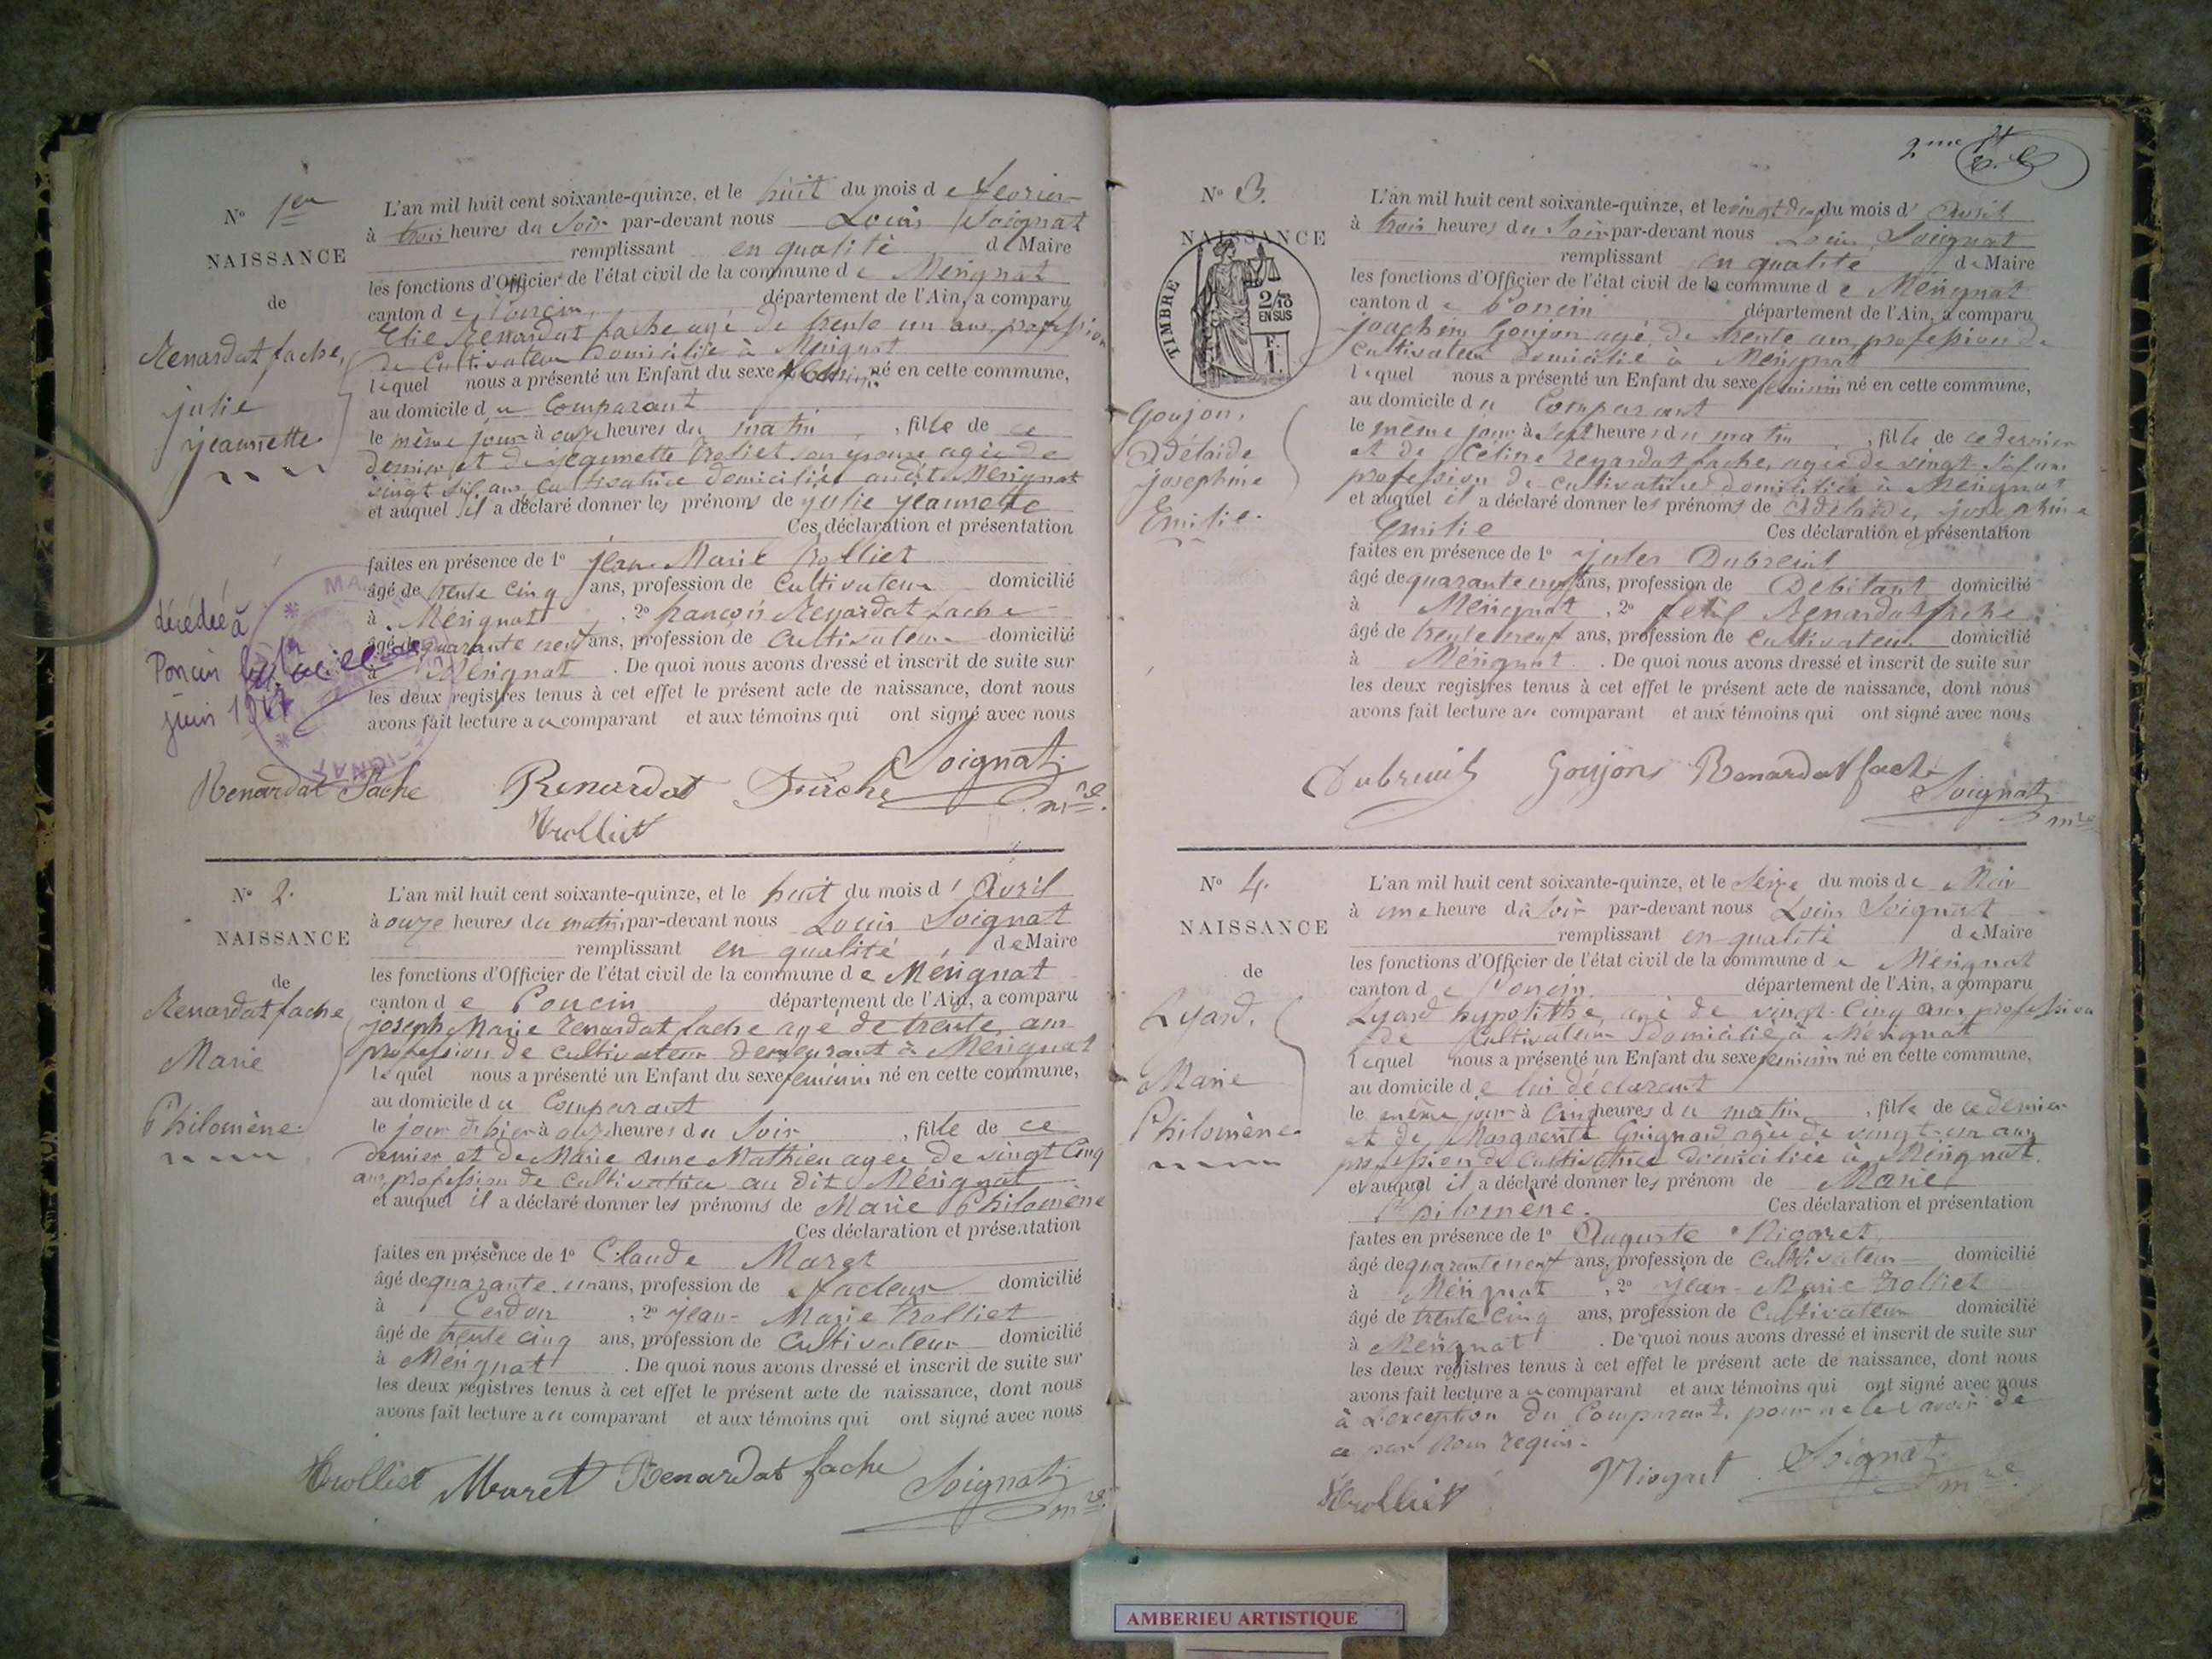 N° 1er
NAISSANCE
de
Renardat fache,
julie
jeannette
décédée à
Poncin le
juin 19
L'an mil huit cent soixante-quinze, et le huit du mois de fevrier
à trois heures du Soir par-devant nous Louis Soignat
remplissant en qualité de Maire
les fonctions d'Officier de l'état civil de la commune de Mérignat
canton de Poncin, département de l'Ain, a comparu
Elie Renardat fache agé de trente un ans, profession
de Cultivateur domicilié à Mérignat
lequel nous a présenté un Enfant du sexe né en cette commune,
au domicile du Comparant
le même jour à onze heures du matin, fille de ce
dernier et de jeannette Troliet son epouse agée de
vingt six ans cultivatrice domiciliée audit Mérignat
et auquel il a déclaré donner les prénoms de julie jeannette
Ces déclaration et présentation
faites en présence de 1° jean Marie Trolliet
âgé de trente cinq ans, profession de Cultivateur domicilié
à Mérignat, 2° françois Renardat fache
âgé de quarante neuf ans, profession de Cultivateur domicilié
à Mérignat. De quoi nous avons dressé et inscrit de suite sur
les deux registres tenus à cet effet le présent acte de naissance, dont nous
avons fait lecture au comparant et aux témoins qui ont signé avec nous
Soignat
Renardat Fache Renardat Fache mre.
Trolliet
N° 2.
NAISSANCE
de
Renardat fache
Marie
Philomène
L'an mil huit cent soixante-quinze, et le huit du mois d'Avril
à onze heures du matin par-devant nous Louis Soignat
remplissant en qualité de Maire
les fonctions d'Officier de l'état civil de la commune de Mérignat
canton de Poncin département de l'Ain, a comparu
joseph Marie renardat fache agé de trente ans
profession de cultivateur demeurant à Mérignat
lequel nous a présenté un Enfant du sexe feminin né en cette commune,
au domicile du Comparant
le jour d'hier à onze heures du Soir, fille de ce
dernier et de Marie anne Mathieu agée de vingt Cinq
ans, profession de cultivatrice au dit Mérignat
et auquel il a déclaré donner les prénoms de Marie Philomène
Ces déclaration et présentation
faites en présence de 1° Claude Maret
âgé de quarante un ans, profession de facteur domicilié
à Cerdon, 2° jean-Marie Trolliet
âgé de trente cinq ans, profession de Cultivateur domicilié
à Mérignat. De quoi nous avons dressé et inscrit de suite sur
les deux registres tenus à cet effet le présent acte de naissance, dont nous
avons fait lecture au comparant et aux témoins qui ont signé avec nous
Trolliet Maret Renardat fache Soignat mre.
2me
N° 3.
NAISSANCE
TIMBRE
2/10
EN SUS
F.
1
Goujon,
Adélaïde
josephine
Emilie.
L'an mil huit cent soixante-quinze, et le du mois d'Avril
à trois heures du Soir par-devant nous Louis Soignat
remplissant en qualité de Maire
les fonctions d'Officier de l'état civil de la commune de Mérignat
canton de Poncin département de l'Ain, a comparu
joachim Goujon agé de trente ans, profession de
cultivateur domicilié à Mérignat
lequel nous a présenté un Enfant du sexe feminin né en cette commune,
au domicile du Comparant
le même jour à sept heures du matin, fille de ce dernier
et de Celine renardat fache, agée de vingt six ans
profession de cultivatrice domiciliée à Mérignat
et auquel il a déclaré donner les prénoms de Adelaïde, josephine
Emilie Ces déclaration et présentation
faites en présence de 1° jules Dubreuil
âgé de quarante neuf ans, profession de Débitant domicilié
à Mérignat, 2° Renardat fache
âgé de trente neuf ans, profession de Cultivateur domicilié
à Mérignat. De quoi nous avons dressé et inscrit de suite sur
les deux registres tenus à cet effet le présent acte de naissance, dont nous
avons fait lecture au comparant et aux témoins qui ont signé avec nous
Dubreuil Goujon Renardat fache Soignat mre
N° 4.
NAISSANCE
de
Lyard,
Marie
Philomène
L'an mil huit cent soixante-quinze, et le Seize du mois de Mai
à une heure du soir par-devant nous Louis Soignat
remplissant en qualité de Maire
les fonctions d'Officier de l'état civil de la commune de Mérignat
canton de Poncin département de l'Ain, a comparu
Lyard hypolithe, agé de vingt-Cinq ans profession
de Cultivateur domicilié à Mérignat
lequel nous a présenté un Enfant du sexe feminin né en cette commune,
au domicile de lui déclarant
le même jour à Cinq heures du matin, fille de ce dernier
et de Marguerite Guignard agée de vingt-un ans
profession de Cultivatrice domiciliée à Mérignat.
et auquel il a déclaré donner les prénom de Marie
Philomène. Ces déclaration et présentation
faites en présence de 1° Auguste
âgé de quarante neuf ans, profession de Cultivateur domicilié
à Mérignat, 2° jean-Marie Trolliet
âgé de trente Cinq ans, profession de Cultivateur domicilié
à Mérignat. De quoi nous avons dressé et inscrit de suite sur
les deux registres tenus à cet effet le présent acte de naissance, dont nous
avons fait lecture au comparant et aux témoins qui ont signé avec nous
à l'exception du Comparant, pour ne le savoir de
ce par nous requis.
Trolliet Soignat mre.
AMBERIEU ARTISTIQUE